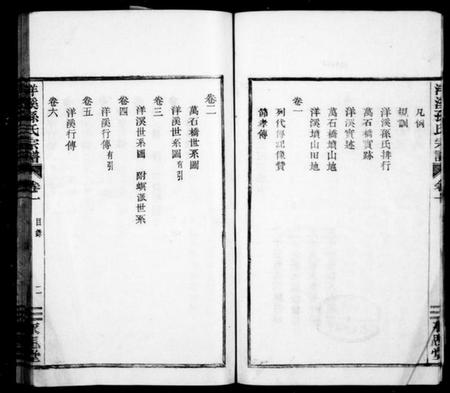 凡例
規訓
洋溪孫氏排行
萬石橋實跡
洋溪實述
萬石橋墳山田地
洋溪墳山田地
卷一
列代傳記像贊
節孝傳
卷二
萬石橋世系圖
洋溪世系圖有引
卷三
洋溪世系圖 附螟派世系
卷四
洋溪行傳有引
卷五
洋溪行傳
卷六
洋溪孫氏宗譜
卷一
目錄
二
永思堂
洋溪孫氏宗譜
永思堂